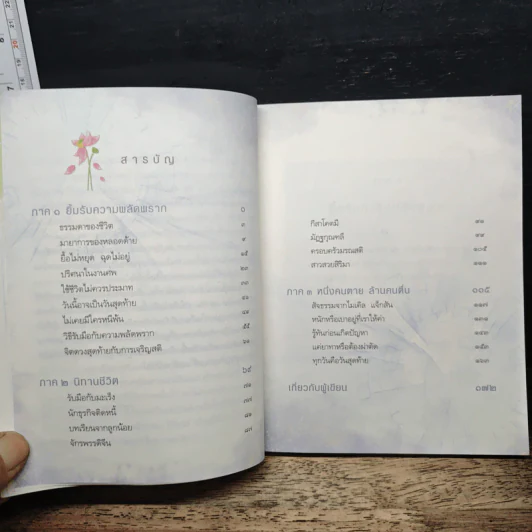 สารบัญ
ภาค ๑ ยิ้มรับความพลัดพราก ๑
ธรรมดาของชีวิต ๓
มายาการของหลอดด้าย ๙
ยื้อไม่หยุด ฉุดไม่อยู่ ๑๕
ปริศนาในงานศพ ๒๓
ใช้ชีวิตไม่ควรประมาท ๓๓
วันนี้อาจเป็นวันสุดท้าย
ไม่เคยมีใครหนีพ้น
วิธีรับมือกับความพลัดพราก ๕๕
จิตดวงสุดท้ายกับการเจริญสติ ๖๑
ภาค ๒ นิทานชีวิต ๖๙
รับมือกับมะเร็ง ๗๑
นักธุรกิจติดหนี้ ๗๗
บทเรียนจากลูกน้อย
จักรพรรดิจีน ๘๗
กีสาโคตมี ๙๑
มัฏฐกุณฑลี
ครอบครัวมรณสติ ๑๐๕
สาวสวยสิริมา ๑๑๑
ภาค ๓ หนึ่งคนตาย ล้านคนตื่น
สัจธรรมจากไมเคิล แจ็กสัน ๑๑๗
หนักหรือเบาอยู่ที่เราให้ค่า
รู้ทันก่อนเกิดปัญหา ๑๔๓
แค่ยาทาหรือต้องผ่าตัด ๑๕๓
ทุกวันคือวันสุดท้าย ๑๖๓
เกี่ยวกับผู้เขียน ๑๗๒